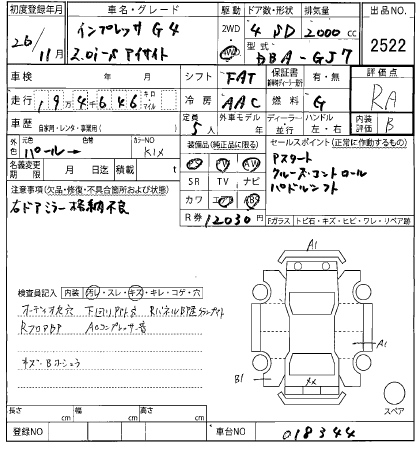 初度登録年月 車名・グレード 駆動 ドア数・形状 排気量 出品NO.
26/11月 インプレッサ G4 2WD 4 SD 2000 cc 2522
2.0i-S アイサイト 4WD 型式 DBA-GJ7
車検 年 月 シフト FAT 保証書 有・無 評価点
走行 19万4千646 キロ マイル 冷房 AAC 燃料 G RA
車歴 自家用・レンタ・事業用( ) 定員 5人 外車モデル 年 ディーラー 並行 ハンドル 左・右 内装評価 B
外色 元色 パール→ カラーNO K1X 装備品(純正品に限る) セールスポイント(正常に作動するもの)
名義変更期限 月 日迄 積載 t SR TV ナビ Pスタート
注意事項(欠品・修復・不具合箇所および状態) カワ エアB ABS クルーズコントロール
右ドアミラー格納不良 R券 12030円 パドルシフト
Fガラス トビ石・キズ・ヒビ・ワレ・リペア跡
A1
検査員記入 内装 汚れ・スレ・キズ・キレ・コゲ・穴
オーディオ欠穴 下回り
RフロアBP A0コンプレッサー音
A1
キズ・B
B1 メメ
スペア
長さ cm 幅 cm 高さ cm
登録NO 車台NO 018344